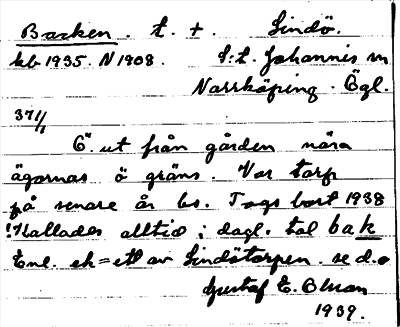 Backen. t. +. Lindö.
kb 1935. N 1908. S:t. Johannis m
Norrköping. Ögl.
37/1
Ö. ut från gården nära
ägornas ö gräns. Var torp
på senare år bs. Togs bort 1938
!Kallades alltid i dagl. tal bak
Enl. ek = ett av Lindötorpen. se d.o
Gustaf E. Blman
1939.